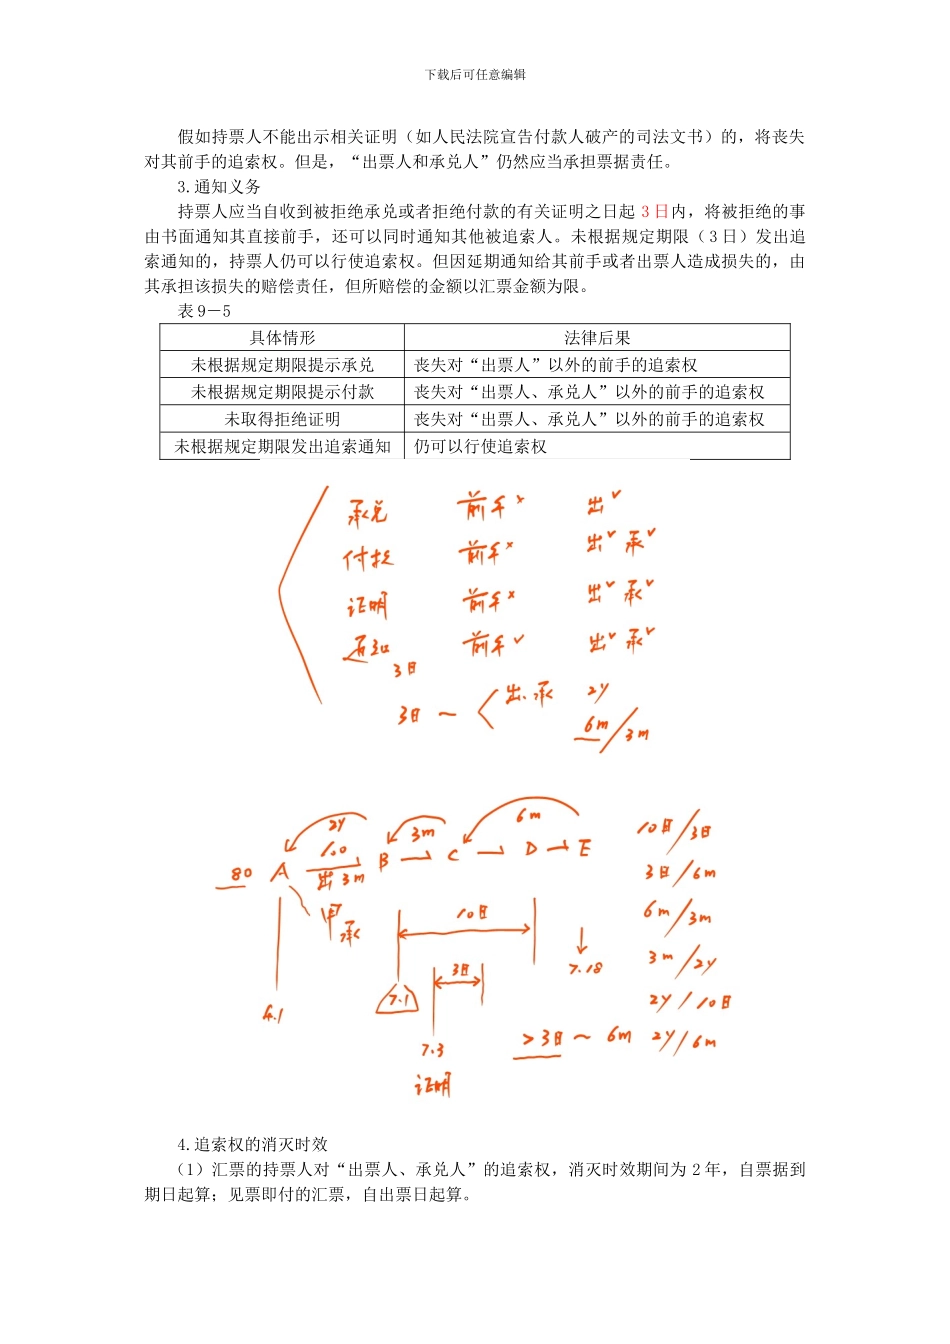 下载后可任意编辑
假如持票人不能出示相关证明（如人民法院宣告付款人破产的司法文书）的，将丧失
对其前手的追索权。但是，“出票人和承兑人”仍然应当承担票据责任。
3.通知义务
持票人应当自收到被拒绝承兑或者拒绝付款的有关证明之日起 3 日内，将被拒绝的事
由书面通知其直接前手，还可以同时通知其他被追索人。未根据规定期限（3 日）发出追
索通知的，持票人仍可以行使追索权。但因延期通知给其前手或者出票人造成损失的，由
其承担该损失的赔偿责任，但所赔偿的金额以汇票金额为限。
表 9－5
具体情形 法律后果
未根据规定期限提示承兑 丧失对“出票人”以外的前手的追索权
未根据规定期限提示付款 丧失对“出票人、承兑人”以外的前手的追索权
未取得拒绝证明 丧失对“出票人、承兑人”以外的前手的追索权
未根据规定期限发出追索通知 仍可以行使追索权
承兑 前手× 出√
付款 前手× 出√ 承√
证明 前手× 出√ 承√
通知 前手√ 出√ 承√
3日
3日 ～ 出、承 2y
6m/3m
2y 3m 6m
80 A 100 B C D E
出 3m
甲承
10日
3日
7.18
4.1
7.1
7.3
证明
>3日～6m
10日/3日
3日/6m
6m/3m
3m/2y
2y/10日
2y/6m
4.追索权的消灭时效
（1）汇票的持票人对“出票人、承兑人”的追索权，消灭时效期间为 2 年，自票据到
期日起算；见票即付的汇票，自出票日起算。